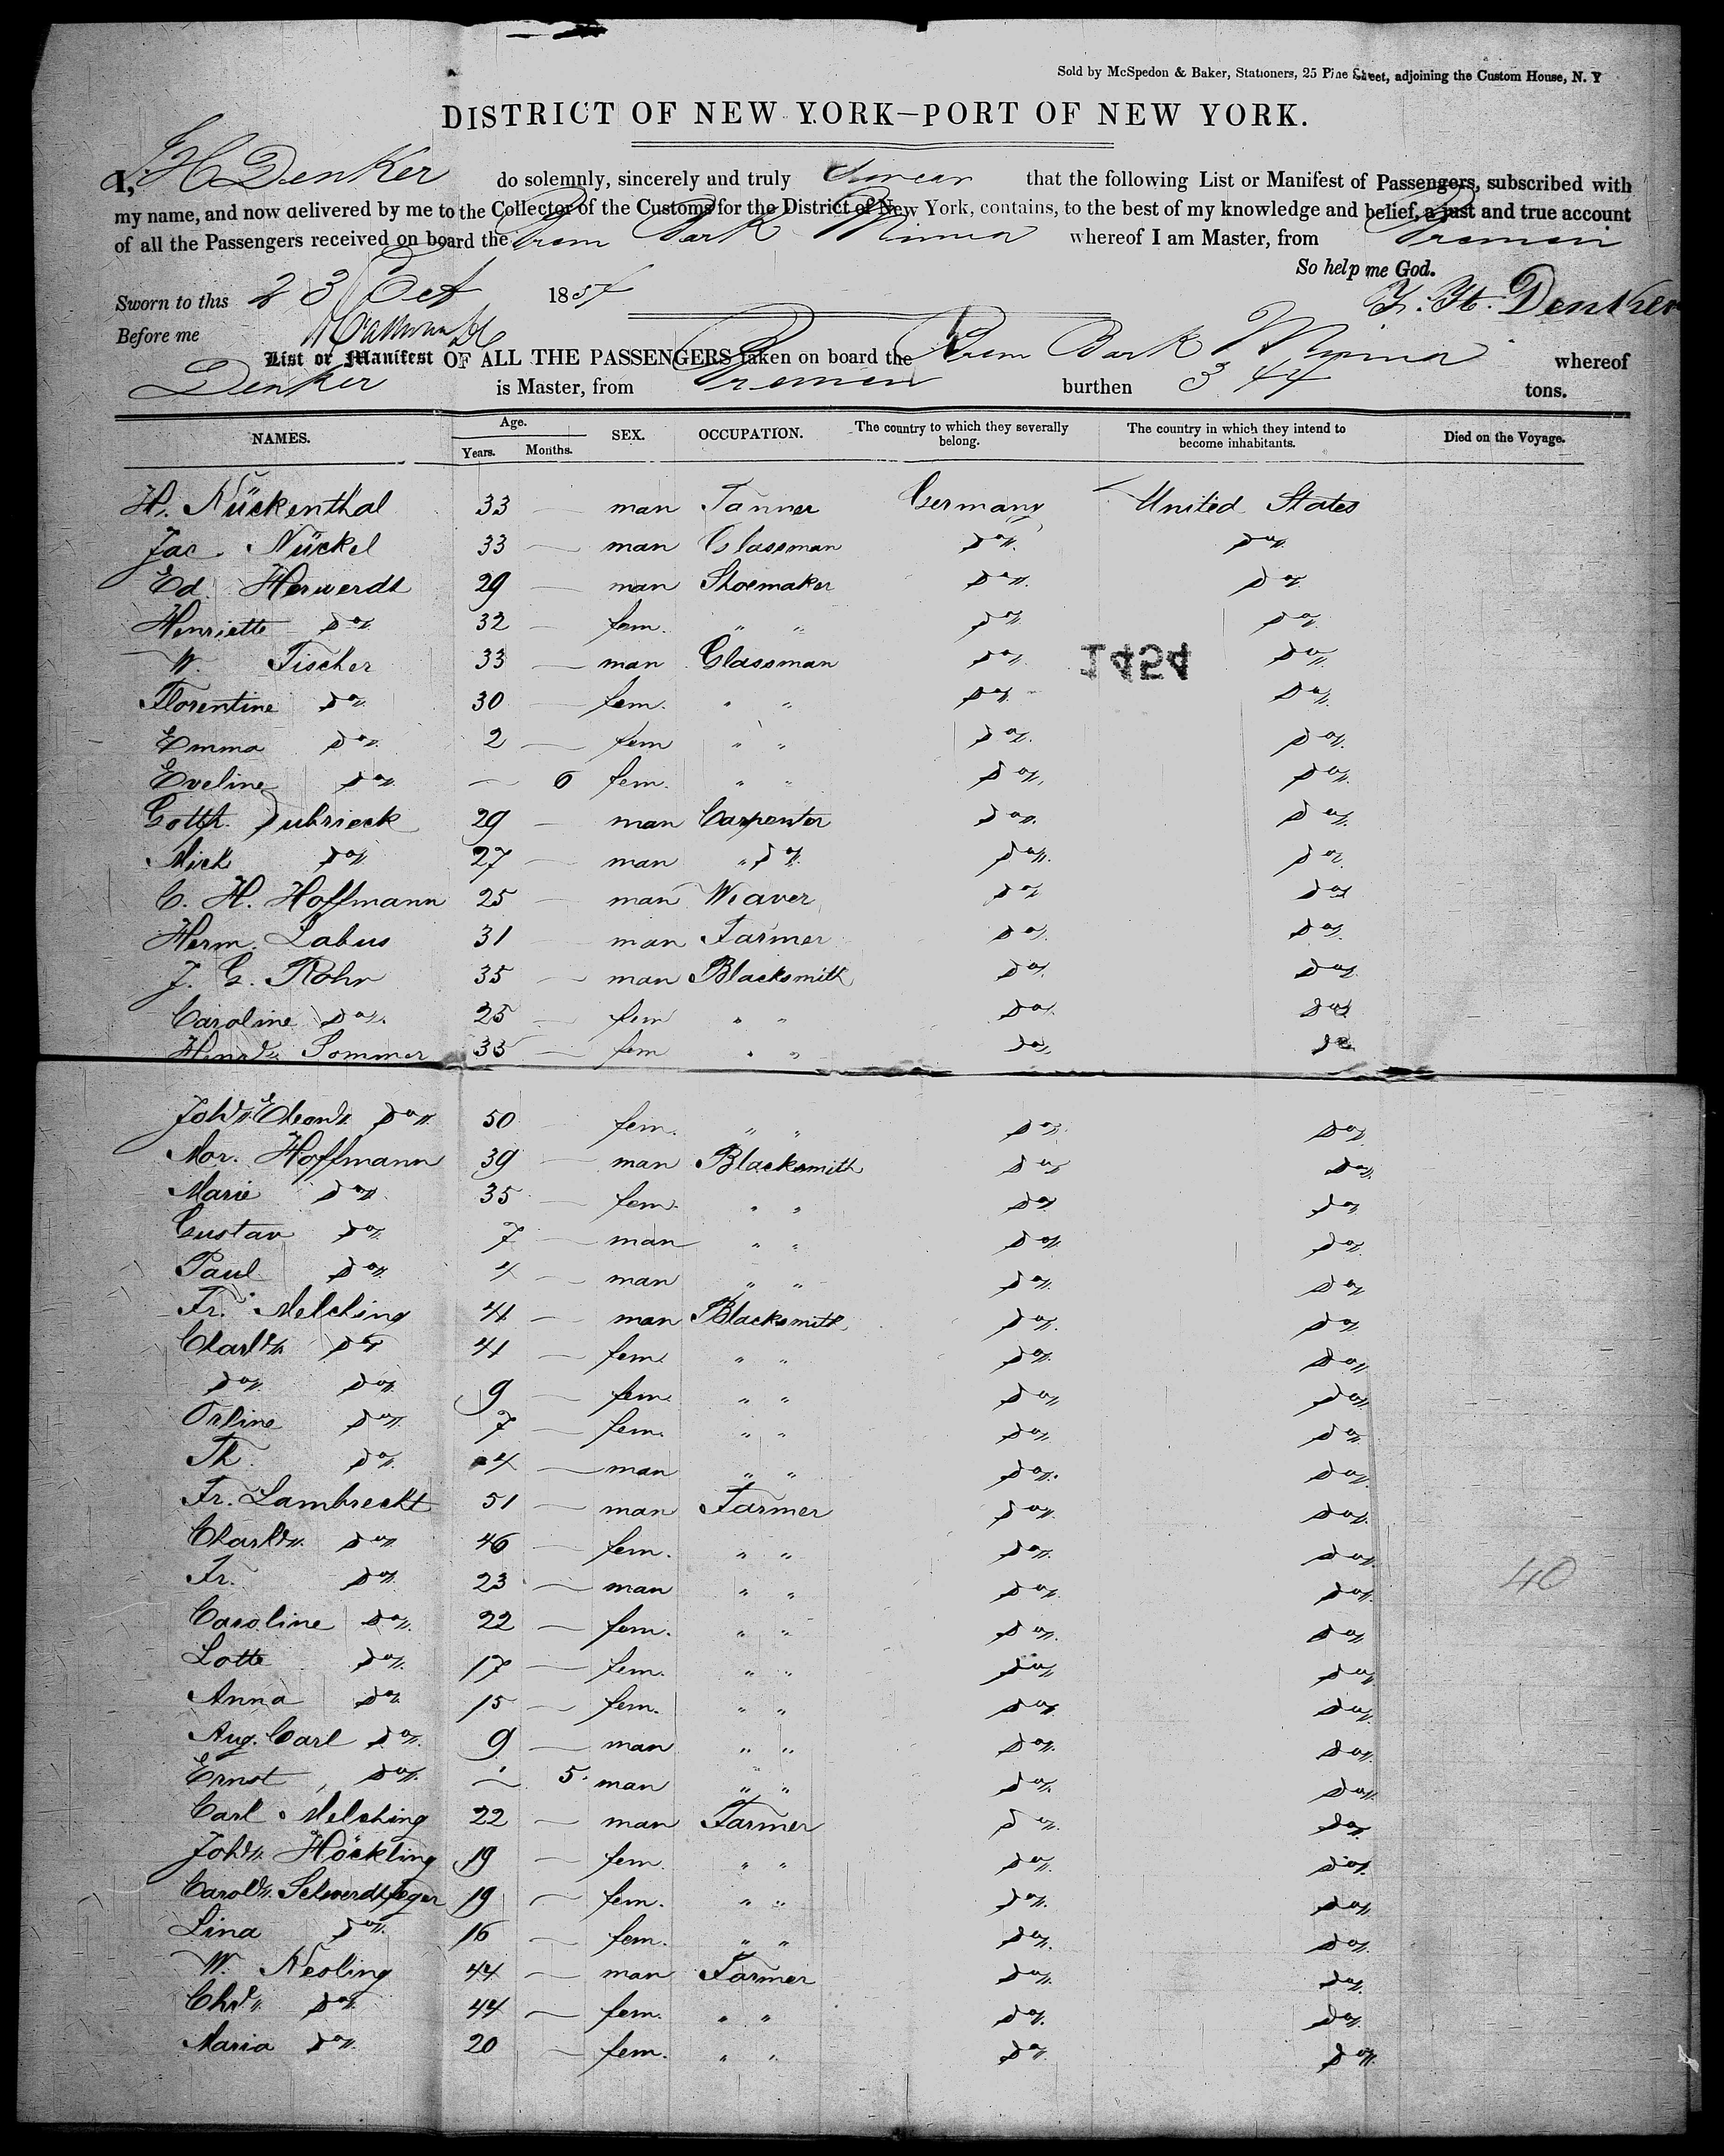 Sold by McSpedon & Baker, Stationers, 25 Pine Street, adjoining the Custom House, N. Y
DISTRICT OF NEW YORK—PORT OF NEW YORK.
I, H Denker do solemnly, sincerely and truly swear that the following List or Manifest of Passengers, subscribed with
my name, and now delivered by me to the Collector of the Customs for the District of New York, contains, to the best of my knowledge and belief, a just and true account
of all the Passengers received on board the Brem Bark whereof I am Master, from Bremen
So help me God.
Sworn to this 23 Oct 1854
H. Denker
Before me
List or Manifest OF ALL THE PASSENGERS taken on board the Brem Bark whereof
Denker is Master, from Bremen burthen 344 tons.
NAMES. Age. Years. Months. SEX. OCCUPATION. The country to which they severally belong. The country in which they intend to become inhabitants. Died on the Voyage.
H. Nückenthal 33 — man Tanner Germany United States
Jac. Nückel 33 — man Glassman do do
Ed. Herwerdt 29 — man Shoemaker do do
Henriette do 32 — fem. " " do do
W. Fischer 33 — man Glassman do do
1454
Florentine do 30 — fem. " " do do
Emma do 2 — fem " " do do
Eveline do — 6 fem. " " do do
Gottfr. Dubrieck 29 — man Carpenter do do
Mich do 27 — man " do do do
C. H. Hoffmann 25 — man Weaver do do
Herm. Labus 31 — man Farmer do do
J. G. Rohr 35 — man Blacksmith do do
Caroline do 25 — fem " " do do
Sommer 33 — fem " " do do
do 50 fem. " " do do
Mor. Hoffmann 39 — man Blacksmith do do
Marie do 35 — fem. " " do do
Gustav do 7 — man " " do do
Paul do 4 — man " " do do
Fr. Melching 41 — man Blacksmith do do
Charld do 41 — fem. " " do do
do do 9 — fem. " " do do
Orline do 7 — fem. " " do do
Th. do 4 — man " " do do
Fr. Lambrecht 51 — man Farmer do do
Charld do 46 — fem. " " do do
Fr. do 23 — man " " do do
40
Caroline do 22 — fem. " " do do
Lotte do 17 — fem. " " do do
Anna do 15 — fem. " " do do
Aug. Carl do 9 — man " " do do
Ernst do — 5 man " " do do
Carl Melching 22 — man Farmer do do
Johd Höckling 19 — fem. " " do do
Carold Schwerdtfeger 19 — fem. " " do do
Lina do 16 — fem. " " do do
W. Nesling 44 — man Farmer do do
Chrd do 44 — fem. " " do do
Maria do 20 — fem. " " do do